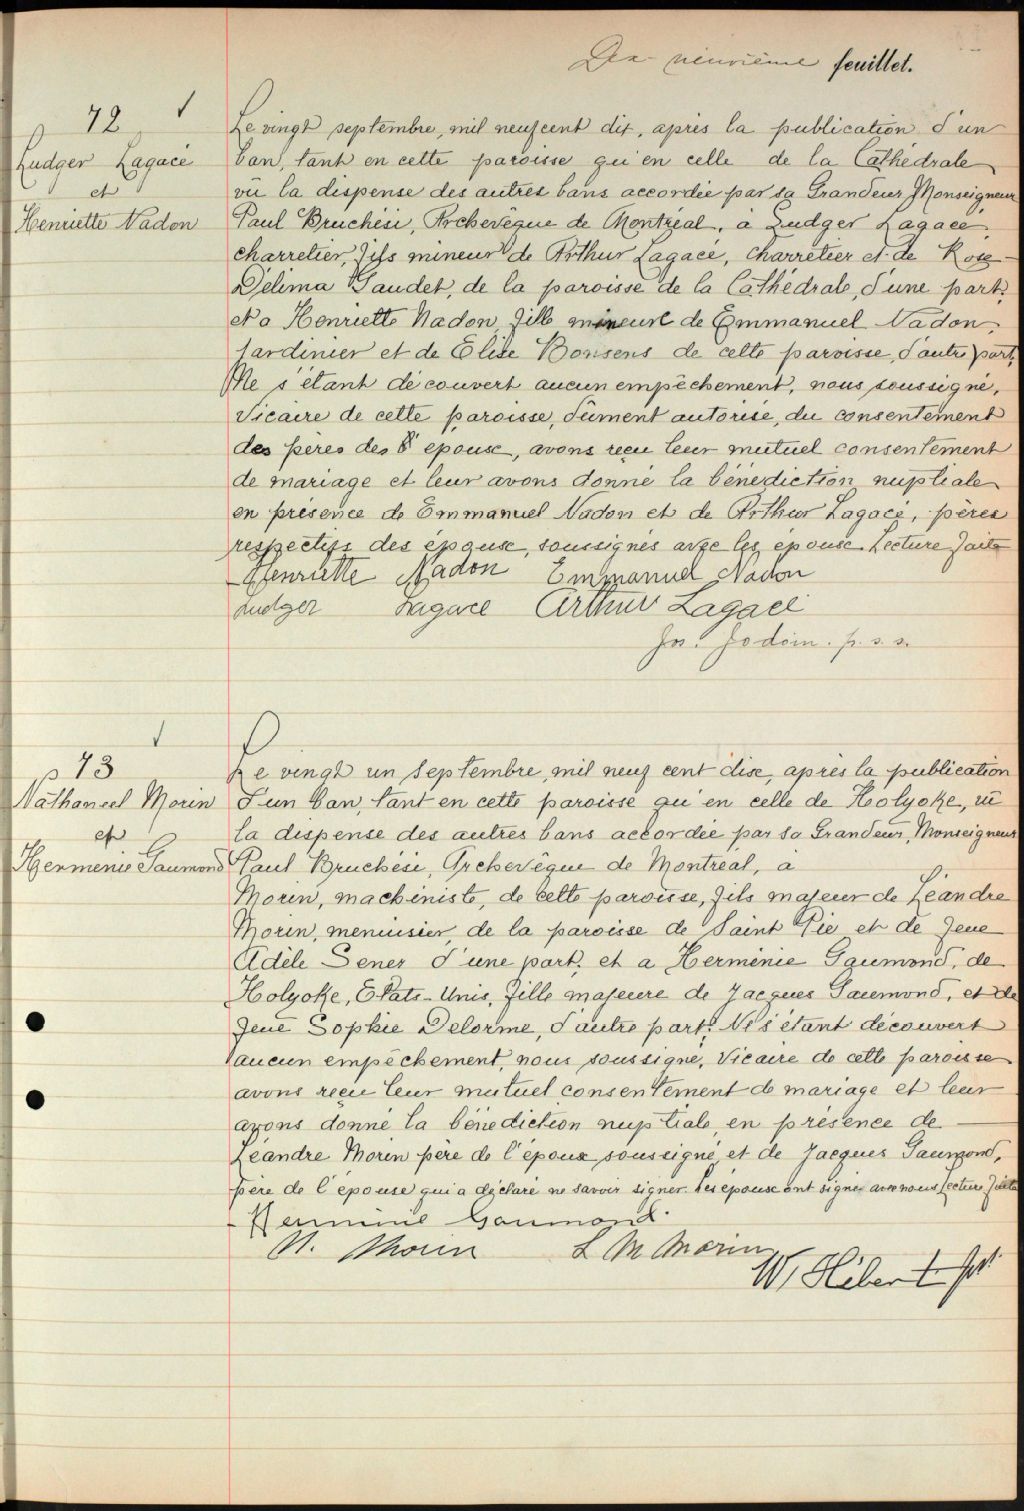 Dix neuvième feuillet.
72
Ludger Lagacé
et
Henriette Nadon
Le vingt septembre, mil neuf cent dix, après la publication d'un
ban, tant en cette paroisse qu'en celle de la Cathédrale
vû la dispense des autres bans accordée par sa Grandeur Monseigneur
Paul Bruchési, Archevêque de Montréal, à Ludger Lagacé,
charretier, fils mineur de Arthur Lagacé, charretier et de Rose-
Délima Gaudet, de la paroisse de la Cathédrale, d'une part,
et a Henriette Nadon, fille mineure de Emmanuel Nadon,
jardinier et de Elise Bonsens de cette paroisse, d'autre part,
Ne s'étant découvert aucun empêchement, nous soussigné,
Vicaire de cette paroisse, dûment autorisé, du consentement
des pères des épouse, avons reçu leur mutuel consentement
de mariage et leur avons donné la bénédiction nuptiale
en présence de Emmanuel Nadon et de Arthur Lagacé, pères
respectifs des épouse, soussignés avec les épouse. Lecture faite
Henriette Nadon Emmanuel Nadon
Ludger Lagacé Arthur Lagacé
Jos. Jodoin. p. s. s.
73
Nathaneel Morin
et
Hermenie Gaumond
Le vingt un Septembre, mil neuf cent dix, après la publication
d'un ban, tant en cette paroisse qu'en celle de Holyoke, vû
la dispense des autres bans accordée par sa Grandeur, Monseigneur
Paul Bruchési, Archevêque de Montréal, à
Morin, machiniste, de cette paroisse, fils majeur de Léandre
Morin, menuisier, de la paroisse de Saint Pie et de feue
Adèle Sener d'une part, et a Herménie Gaumond, de
Holyoke, Etats-Unis, fille majeure de Jacques Gaumond, et de
feue Sophie Delorme, d'autre part. Ne s'étant découvert
aucun empêchement, nous soussigné, Vicaire de cette paroisse
avons reçu leur mutuel consentement de mariage et leur
avons donné la bénédiction nuptiale, en présence de
Léandre Morin père de l'époux soussigné et de Jacques Gaumond,
père de l'épouse qui a déclaré ne savoir signer. Les épouse ont signé avec nous Lecture faite
Herminie Gaumond.
N. Morin L M Morin
W. Hébert ptr